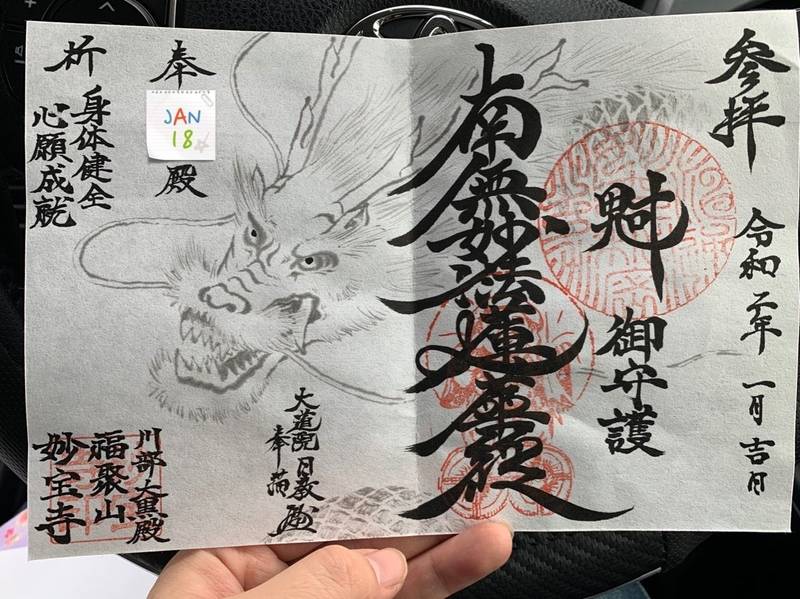 参拝
令和二年 一月吉日
御守護
南無妙法蓮華経
大道院日教
奉
殿
JAN
18
祈
身体健全
心願成就
川部大黒殿
福聚山
妙宝寺